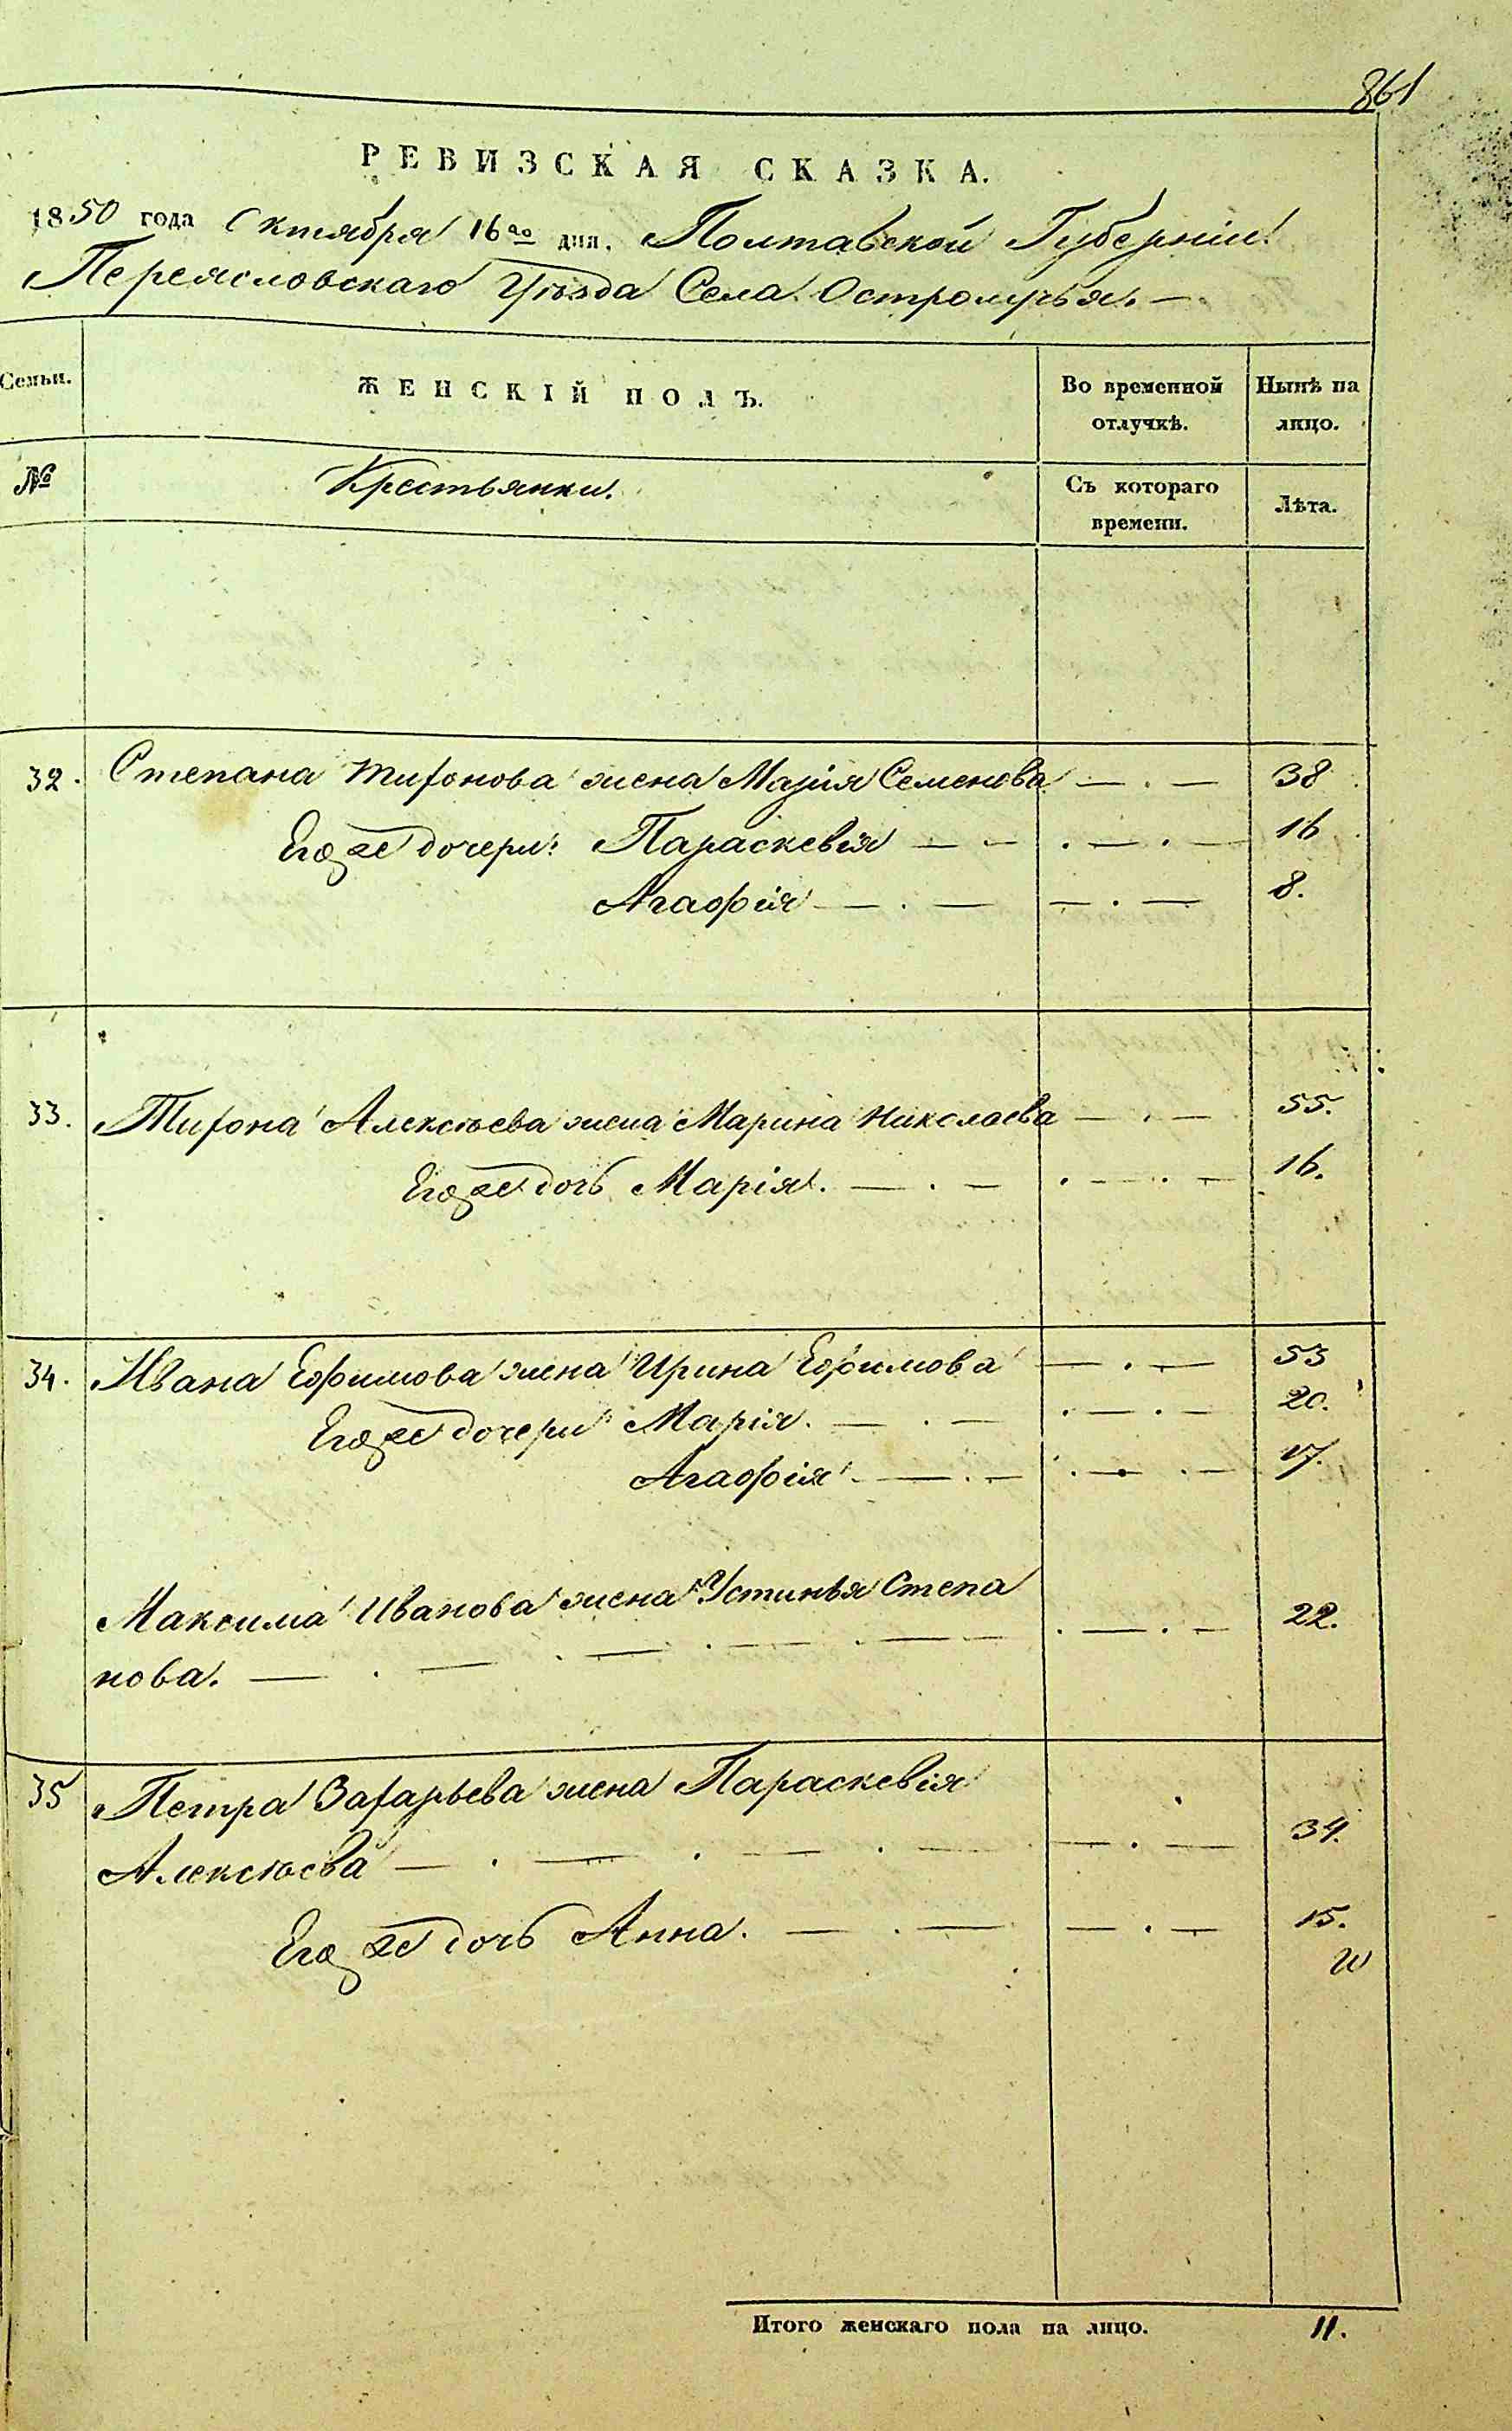 861
РЕВИЗСКАЯ СКАЗКА.
1850 года Октября 16го дня. Полтавской Губерніи
Переясловскаго Уѣзда Села Остролучья. —
Семьи. ЖЕНСКІЙ ПОЛЪ. Во временной отлучкѣ. Нынѣ на лицо.
№ Крестьянки. Съ котораго времени. Лѣта.
32. Степана Тихонова жена Марія Семенова — . — 38
Его же дочери: Параскевія — — . — . — 16
Агафія — . — — . — 8.
33. Тихона Алексѣева жена Марина Николаева — . — 55.
Его же дочь Марія. — . — . — . — 16.
34. Ивана Ефимова жена Ирина Ефимова — . — 53
Его же дочери Марія. — . — . — . — 20.
Агафія — . — . — . — 17.
Максима Иванова жена Устинья Степа
нова. — . — . — . — . — . — 22.
35 Петра Захарьева жена Параскевія
Алексѣева — . — . — . — — . — 34.
Его же дочь Анна. — . — — . — 15.
Итого женскаго пола на лицо. 11.